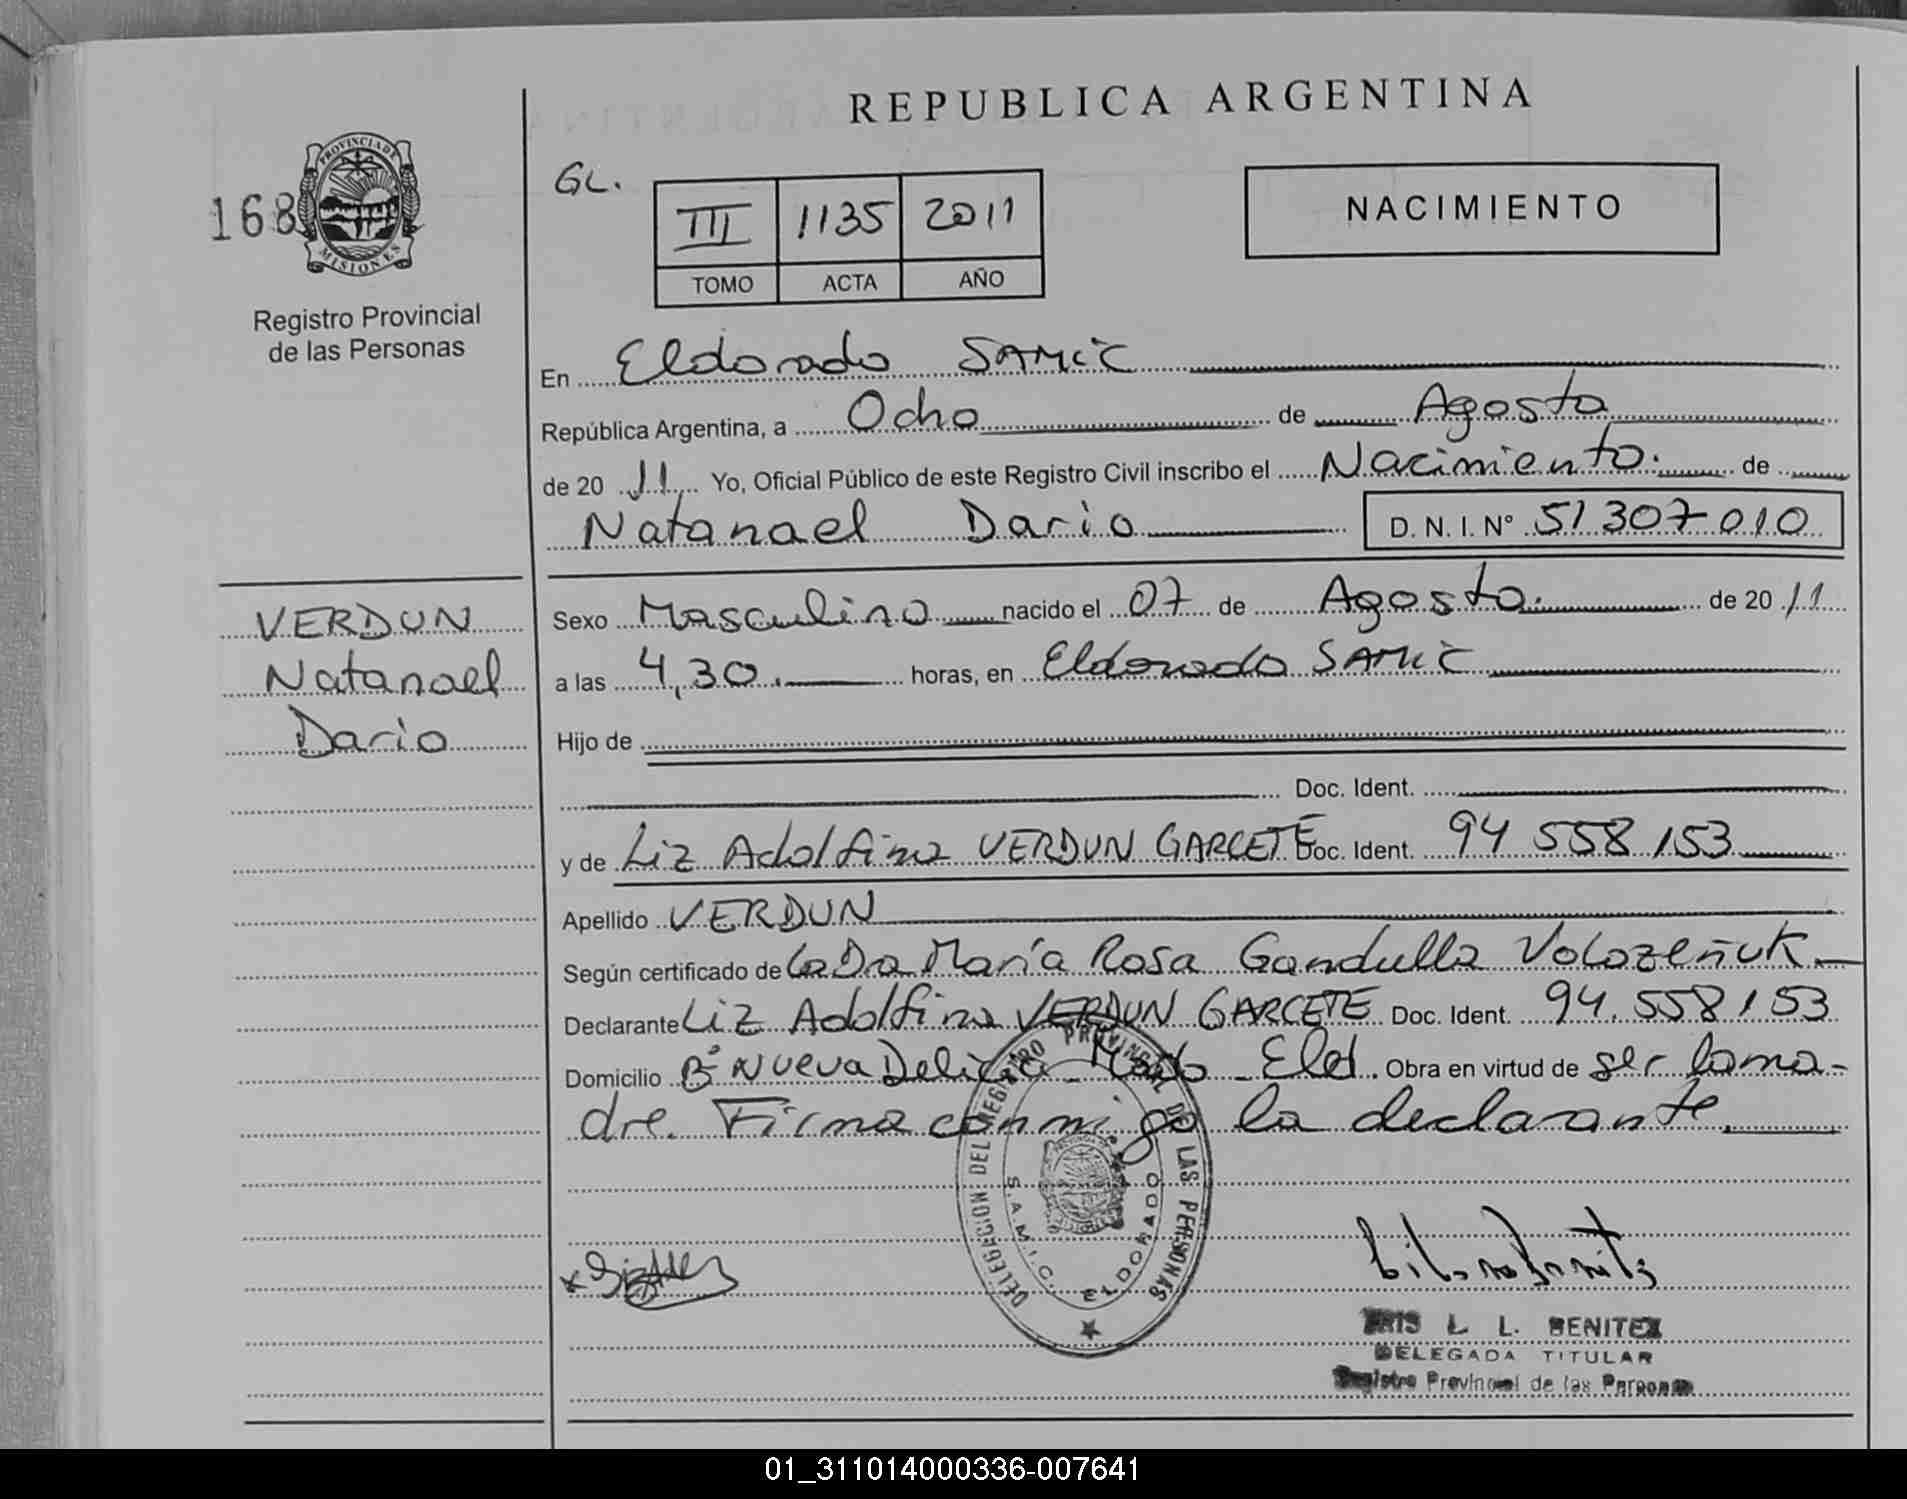 REPUBLICA ARGENTINA
168
PROVINCIA DE
MISIONES
Registro Provincial
de las Personas
GL.
III 1135 2011
TOMO ACTA AÑO
NACIMIENTO
En Eldorado SAMIC
República Argentina, a Ocho de Agosto
de 20 11 Yo, Oficial Público de este Registro Civil inscribo el Nacimiento. de
Natanael Dario D. N. I. N° 51 307 010
VERDUN
Natanael
Dario
Sexo Masculino nacido el 07 de Agosto. de 20 11
a las 4,30. horas, en Eldorado SAMIC
Hijo de
Doc. Ident.
y de Liz Adolfina VERDUN GARCETE Doc. Ident. 94 558 153
Apellido VERDUN
Según certificado de la Dra María Rosa Gandulla Volozeñuk
Declarante Liz Adolfina VERDUN GARCETE Doc. Ident. 94.558 153
Domicilio B° Nueva Delicia - Mado - Eld. Obra en virtud de ser la ma-
dre. Firma conmigo la declarante.
DELEGACION DEL REGISTRO PROVINCIAL DE LAS PERSONAS
S.A.M.I.C. ELDORADO
L. L. BENITEZ
DELEGADA TITULAR
Registro Provincial de las Personas
01_311014000336-007641